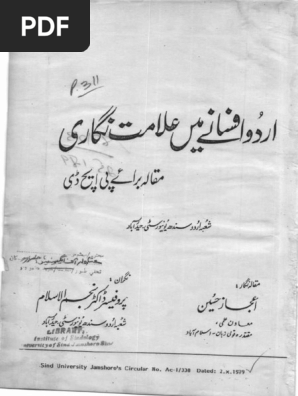 PDF
P. 311
اردو افسانے میں علامت نگاری
مقالہ برائے پی ایچ ڈی
شعبۂ اردو سندھ یونیورسٹی، حیدرآباد
مقالہ نگار:
اعجاز حسین
نگران:
پروفیسر ڈاکٹر نجم الاسلام
شعبۂ اردو سندھ یونیورسٹی، حیدرآباد
مقتدرہ قومی زبان، اسلام آباد
LIBRARY,
Institute of Sindhology
University of Sind Jamshoro-Sind
Sind University Jamshoro's Circular No. Ac-I/338 Dated: